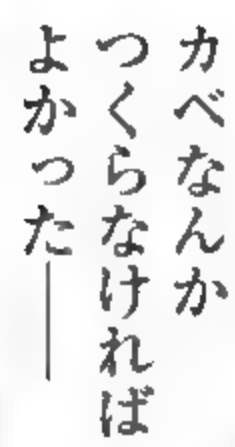 カベなんか
つくらなければ
よかった――